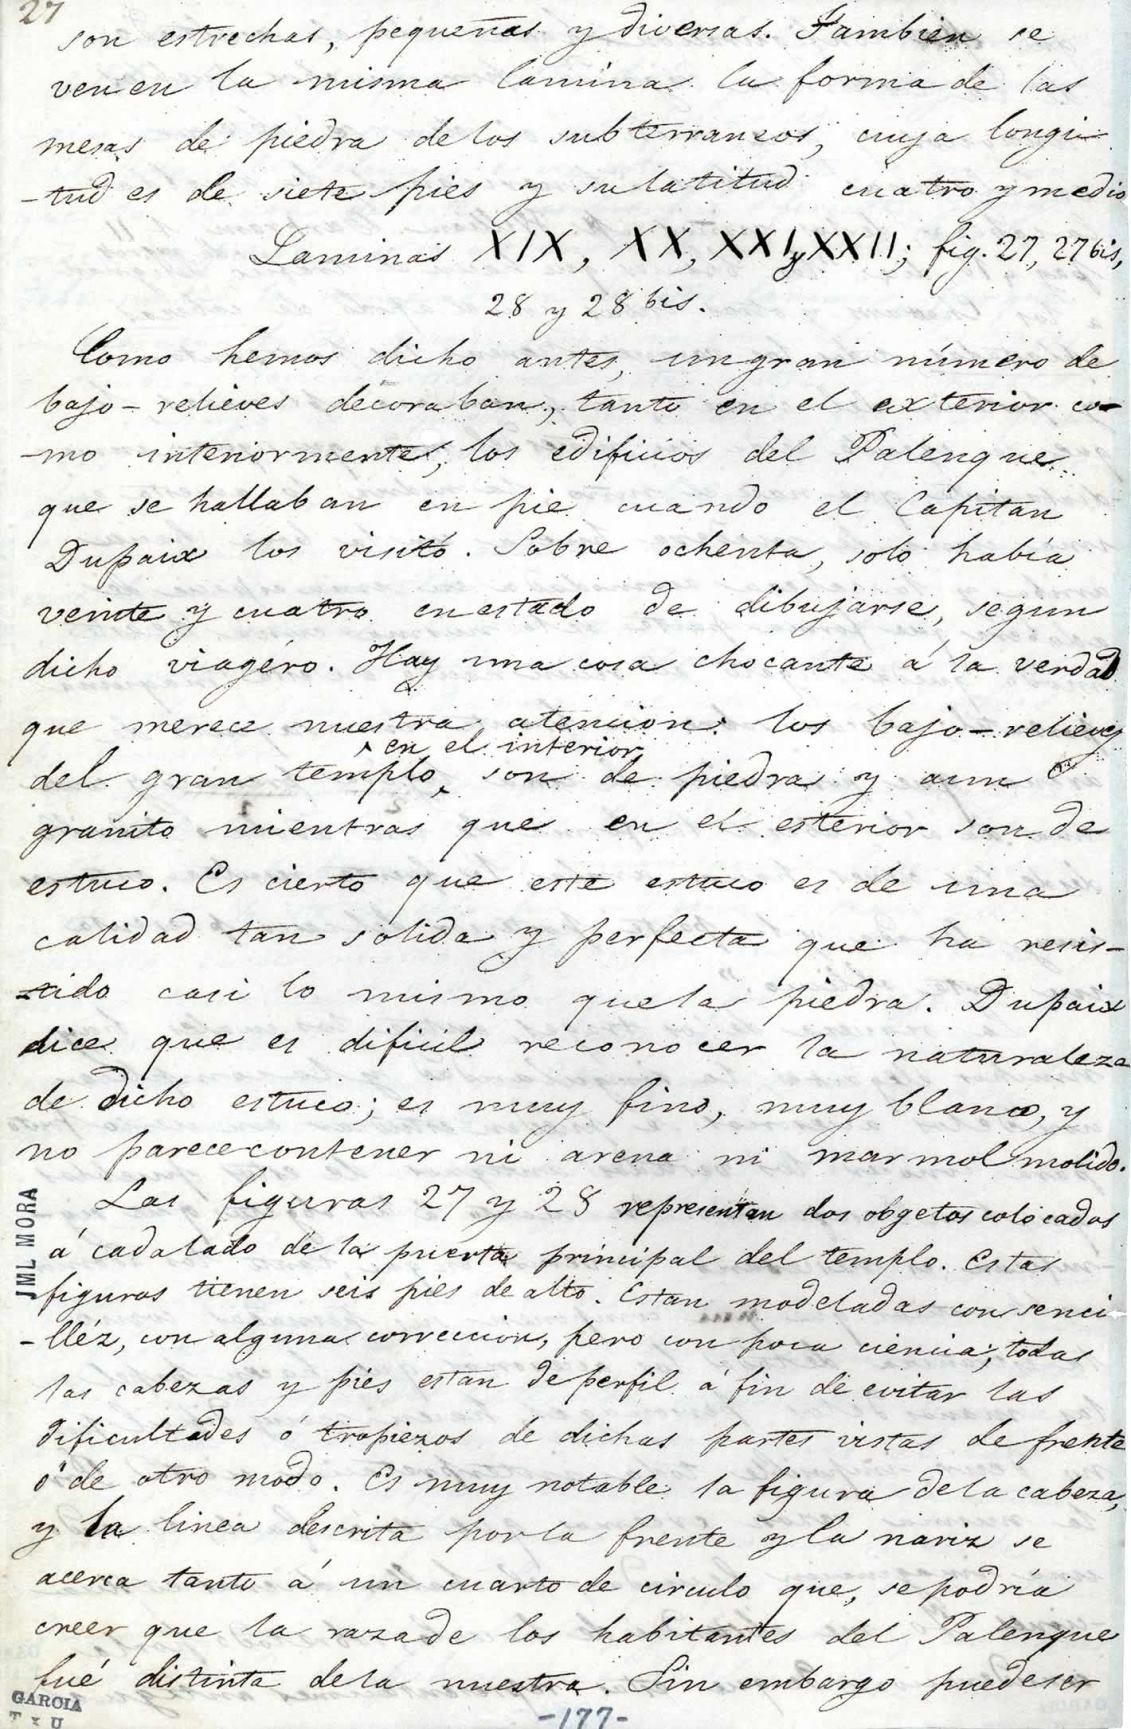 27
son estrechas, pequeñas y diversas. Tambien se
ven en la misma lámina la forma de las
mesas de piedra de los subterraneos, cuya longi-
-tud es de siete pies y su latitud cuatro y medio
Laminas XIX, XX, XXI y XXII; fig. 27, 27 bis,
28 y 28 bis.
Como hemos dicho antes, un gran número de
bajo-relieves decoraban, tanto en el exterior co-
-mo interiormente, los edificios del Palenque
que se hallaban en pie cuando el Capitan
Dupaix los visitó. Sobre ochenta, solo había
veinte y cuatro en estado de dibujarse, segun
dicho viagéro. Hay una cosa chocante á la verdad
que merece nuestra atencion: los bajo-relieves
en el interior
del gran templo, son de piedra y aun
granito mientras que en el esterior son de
estuco. Es cierto que este estuco es de una
calidad tan solida y perfecta que ha resis-
-tido casi lo mismo que la piedra. Dupaix
dice que es dificil reconocer la naturaleza
de dicho estuco; es muy fino, muy blanco, y
no parece contener ni arena ni marmol molido.
Las figuras 27 y 28 representan dos obgetos colocados
á cada lado de la puerta principal del templo. Estas
figuras tienen seis pies de alto. Estan modeladas con senci-
-lléz, con alguna correccion, pero con poca ciencia; todas
las cabezas y pies estan de perfil á fin de evitar las
dificultades ó tropiezos de dichas partes vistas de frente
ó de otro modo. Es muy notable la figura de la cabeza,
y la linea descrita por la frente y la nariz se
acerca tanto á un cuarto de circulo que, se podría
creer que la raza de los habitantes del Palenque
fué distinta de la nuestra. Sin embargo puede ser
JML MORA
GARCIA
T Y U
-177-